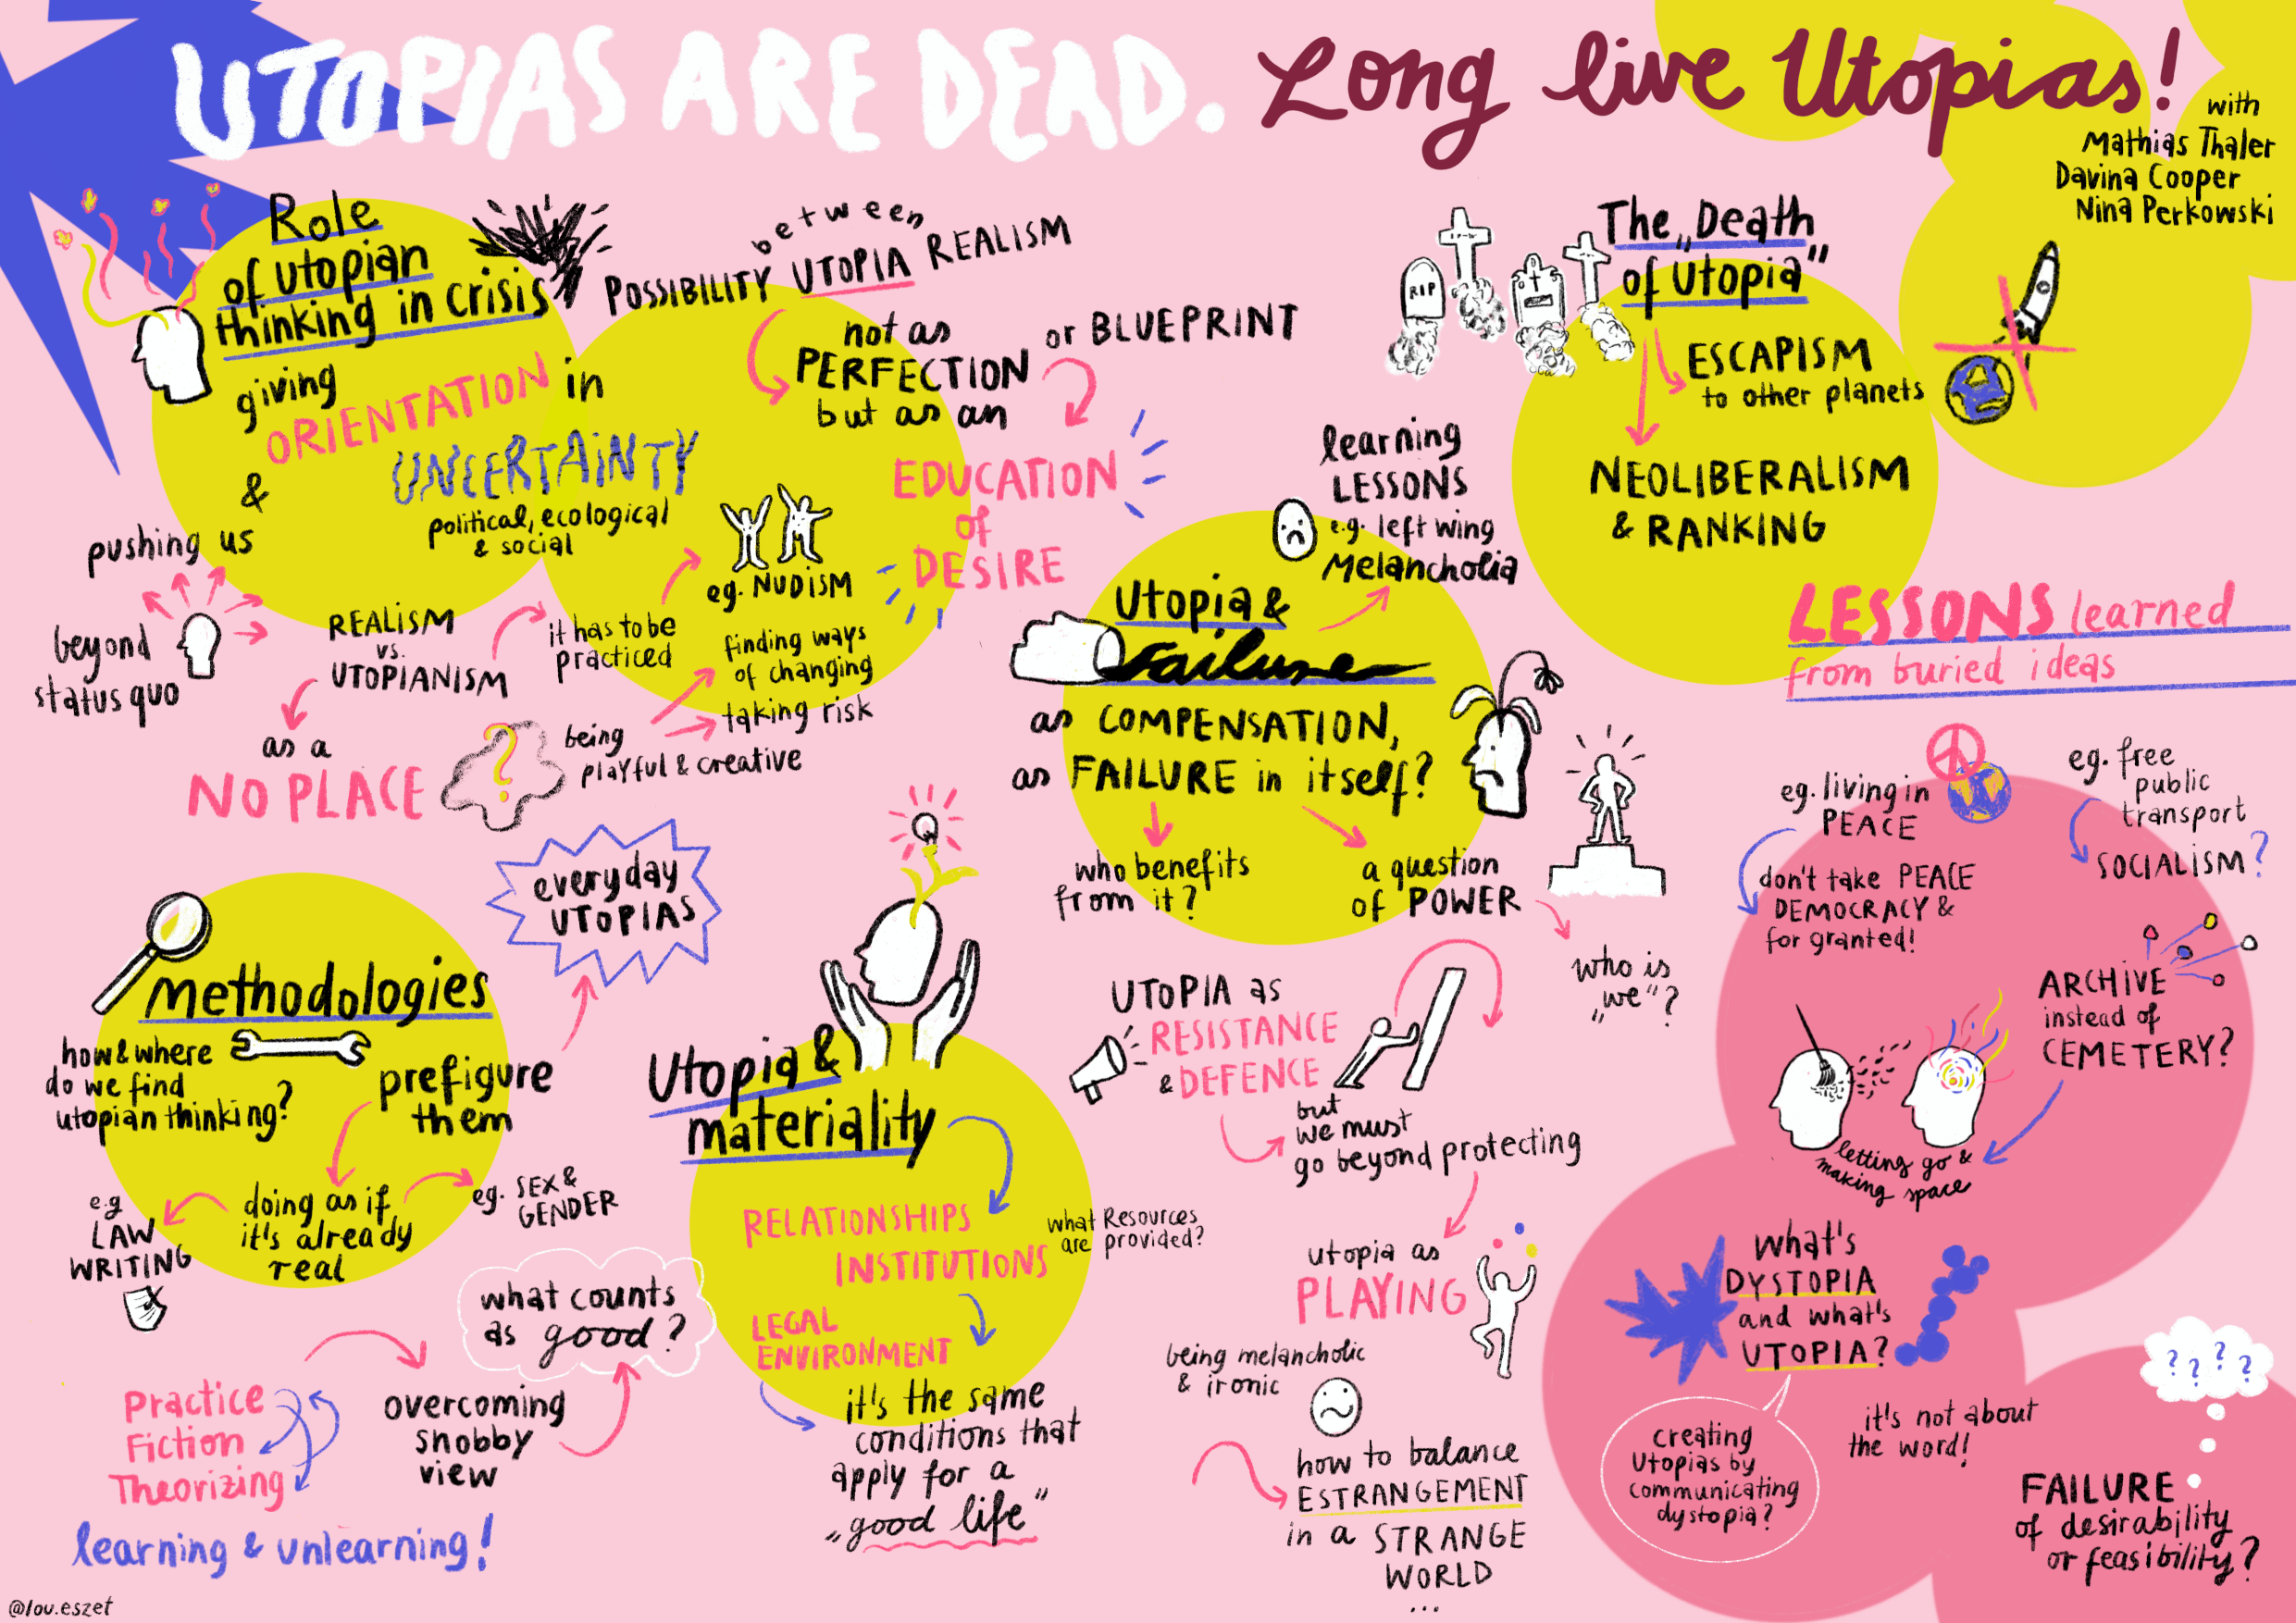 UTOPIAS ARE DEAD. Long live Utopias!
with
Mathias Thaler
Davina Cooper
Nina Perkowski
Role
of utopian
thinking in crisis
giving
ORIENTATION in
UNCERTAINTY
political, ecological
& social
&
pushing us
beyond
status quo
REALISM
vs.
UTOPIANISM
as a
NO PLACE
?
it has to be
practiced
eg. NUDISM
being
playful & creative
finding ways
of changing
taking risk
between
POSSIBILITY UTOPIA REALISM
not as
PERFECTION
but as an
or BLUEPRINT
EDUCATION
of
DESIRE
The „Death
of utopia"
RIP
ESCAPISM
to other planets
NEOLIBERALISM
& RANKING
learning
LESSONS
e.g. left wing
Melancholia
Utopia &
Failure
as COMPENSATION,
as FAILURE in itself?
who benefits
from it?
a question
of POWER
who is
„we"?
LESSONS learned
from buried ideas
eg. living in
PEACE
don't take PEACE
DEMOCRACY &
for granted!
eg. free
public
transport
SOCIALISM?
ARCHIVE
instead of
CEMETERY?
letting go &
making space
everyday
UTOPIAS
Methodologies
how & where
do we find
utopian thinking?
prefigure
them
doing as if
it's already
real
e.g
LAW
WRITING
eg. SEX &
GENDER
what counts
as good?
overcoming
snobby
view
Practice
Fiction
Theorizing
learning & unlearning!
Utopia &
materiality
RELATIONSHIPS
INSTITUTIONS
what Resources
are provided?
LEGAL
ENVIRONMENT
it's the same
conditions that
apply for a
„good life"
UTOPIA as
RESISTANCE
& DEFENCE
but
we must
go beyond protecting
utopia as
PLAYING
being melancholic
& ironic
how to balance
ESTRANGEMENT
in a STRANGE
WORLD
...
what's
DYSTOPIA
and what's
UTOPIA?
creating
Utopias by
communicating
dystopia?
it's not about
the word!
? ? ? ?
FAILURE
of desirability
or feasibility?
@lou.eszet